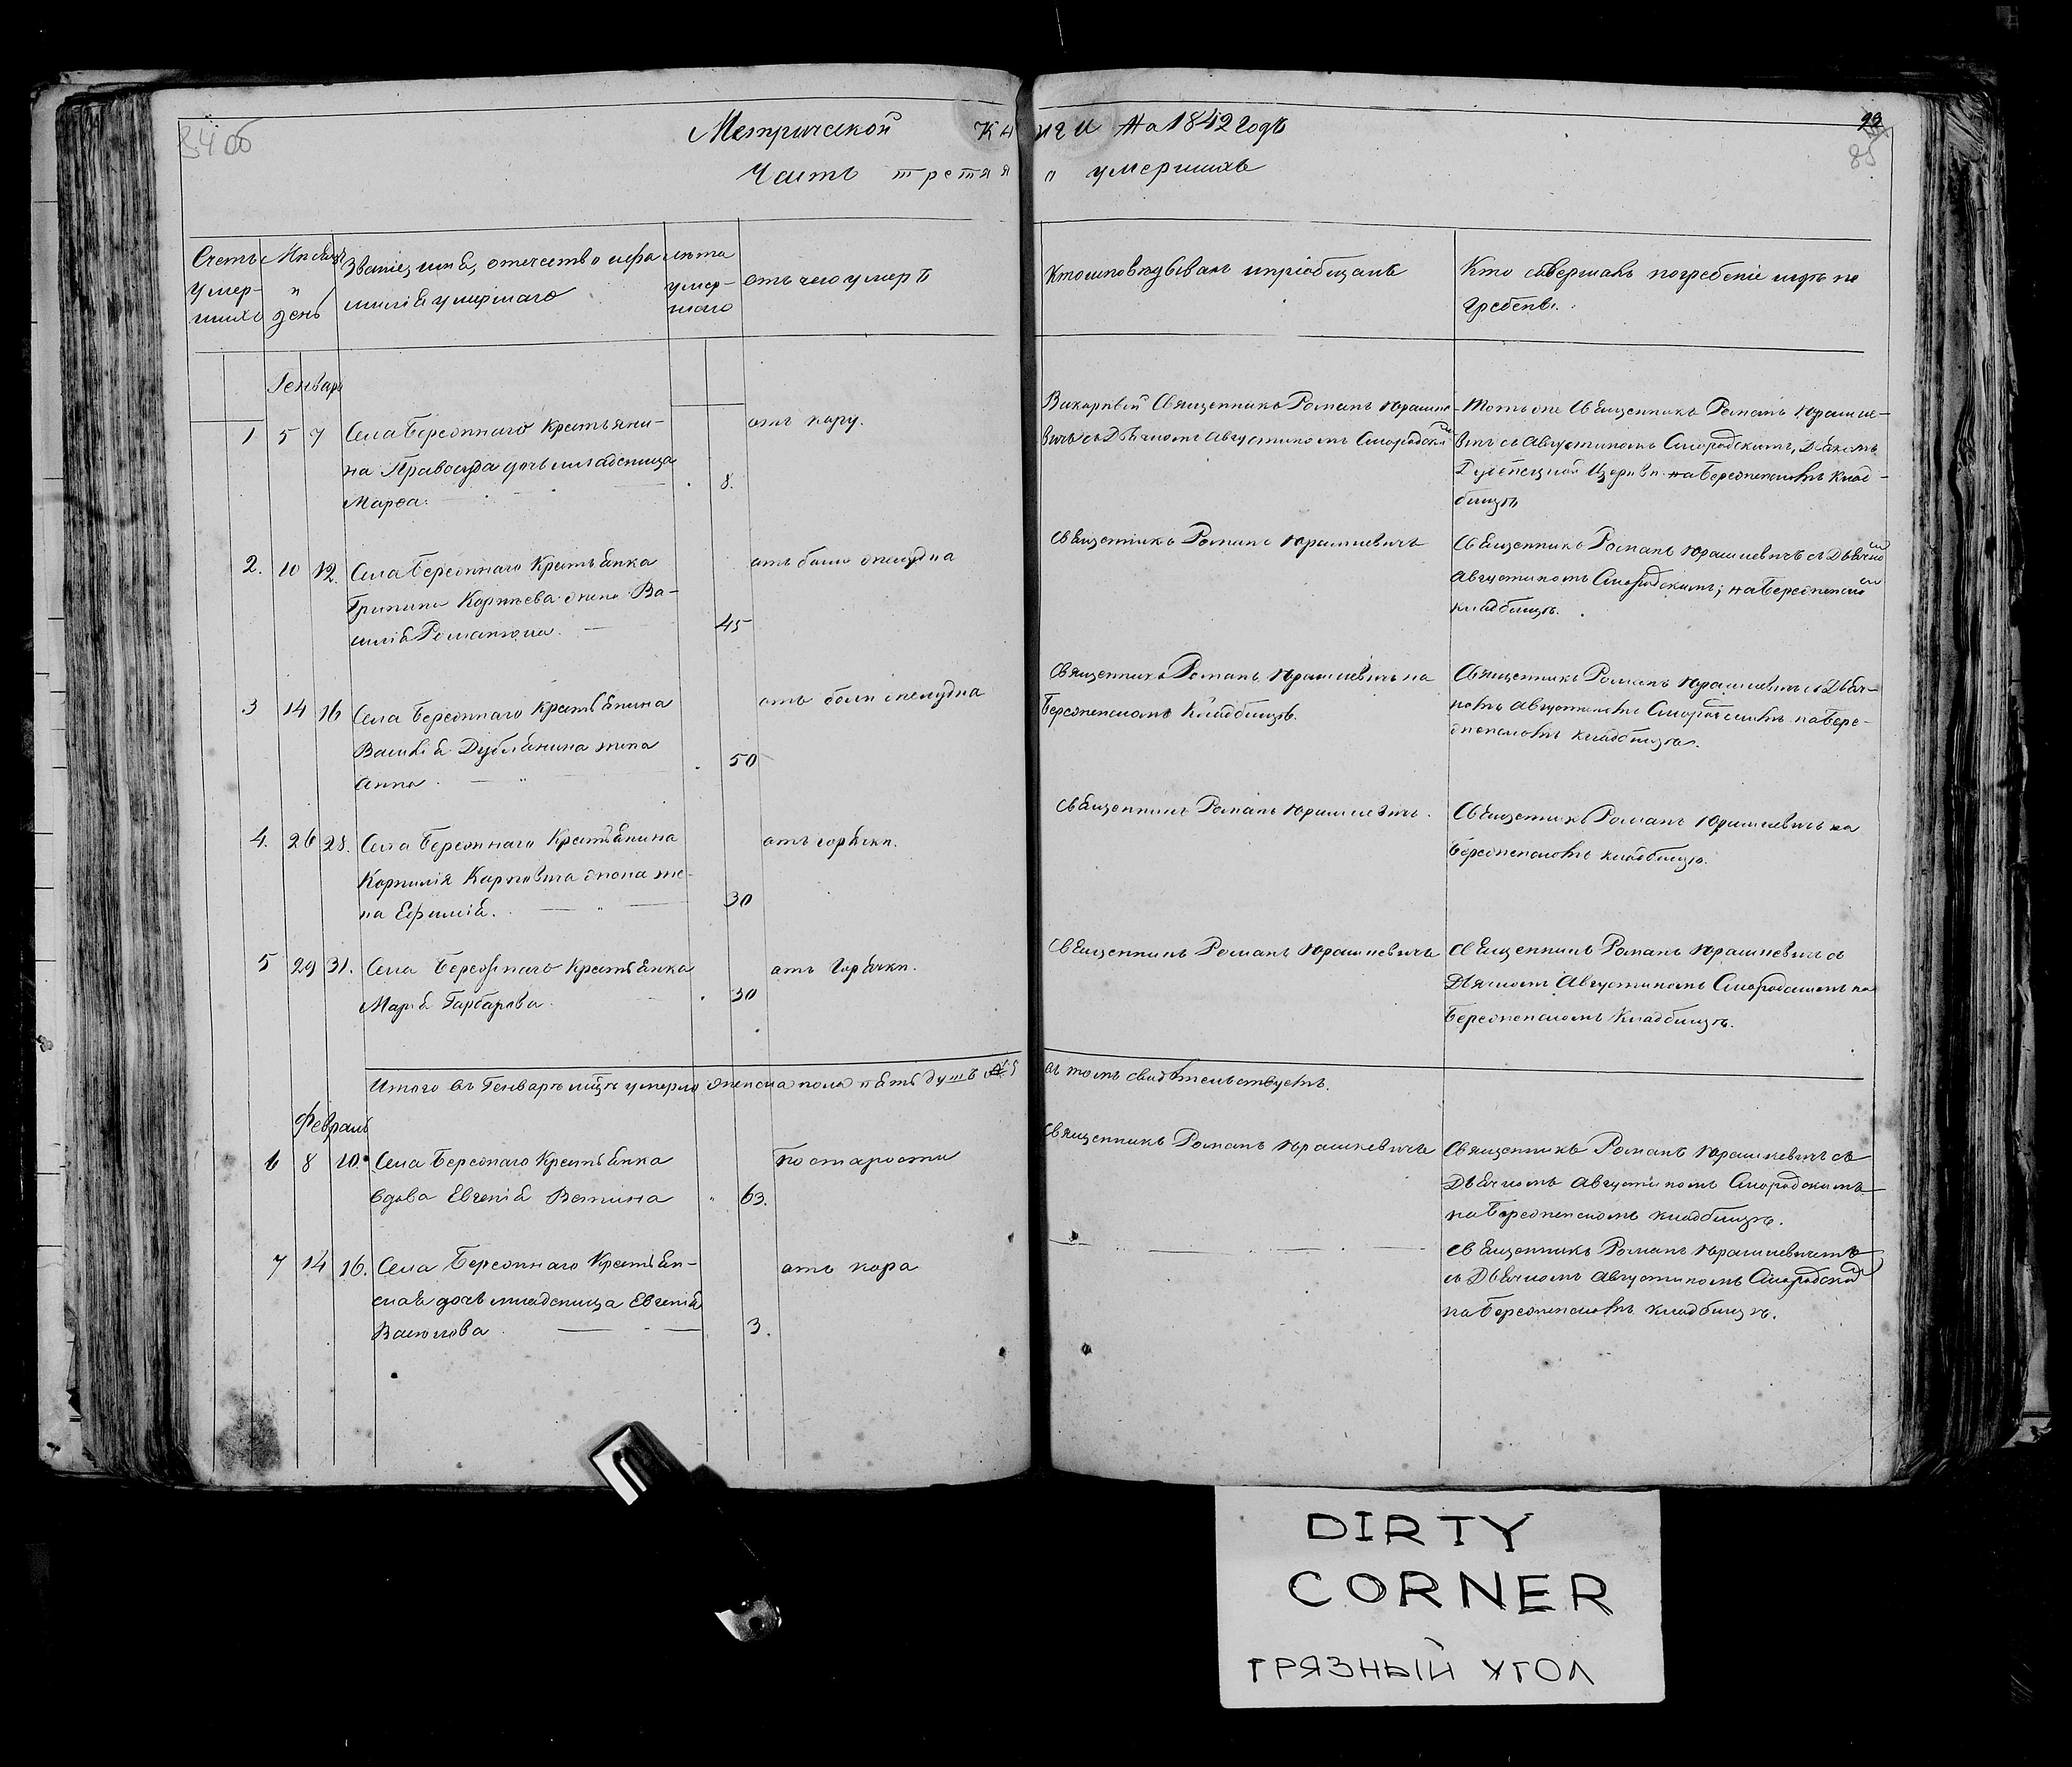 84 об
Метрической Книги На 1842 Годъ
93
85
Часть третяя о умершихъ
Счетъ умер- шихъ
Мѣсяцъ и день
Званіе, имя, отечество и фа
милія умершаго
лѣта умер- шаго
отъ чего умеръ
Кто исповѣдывалъ и пріобщалъ
Кто совершалъ погребеніе и гдѣ по
гребенъ.
Генваръ
1. 5 7 Села Бережнаго Крестьяни-
на дочь младеница
Марѳа. 8.
отъ кору.
Священникъ Романъ Юрашке
вичь съ Дьячкомъ Августиномъ Смородским
Тотъ же Священникъ Романъ Юрашке-
вичъ съ Августиномъ Смородскимъ, Дьякомъ
Церкви на Бережненскомъ Клад-
бищѣ
2. 10 12. Села Бережнаго Крестьянка
Корнѣева жена Ва-
силія Романюка. 45
отъ боли живудна
Священникъ Романъ Юрашкевичъ
Священникъ Романъ Юрашкевичъ съ Дьячко
Августиномъ Смородскимъ; на Бережненско
кладбищѣ.
3 14 16 Села Бережнаго Крестьянина
Василія Дублянина жена
Анна. 50
отъ боли желудка
Священникъ Романъ Юрашкевичь на
Бережненскомъ Кладбищѣ.
Священникъ Романъ Юрашкевичъ съ Дьяч-
комъ Августиномъ Смородскимъ на Бере-
жненскомъ кладбищѣ.
4. 26 28. Села Бережнаго Крестьянина
Корнилія Карповича жена
на Ефимія. 30
отъ горячки.
Священникъ Романъ Юрашкевичъ.
Священникъ Романъ Юрашкевичь на
Бережненскомъ кладбищѣ.
5 29 31. Села Бережнаго Крестьянка
Марія Гарбарова. 30
отъ Горячки.
Священникъ Романъ Юрашкевичь
Священникъ Романъ Юрашкевичъ съ
Дьячкомъ Августиномъ Смородскимъ на
Бережненскомъ Кладбищѣ.
Итого въ Генварѣ мцѣ умерло женска пола пять душъ въ томъ свидѣтельствуетъ.
Февраль
6 8 10. Села Бережнаго Крестьянка
вдова Евгенія 63.
По старости
Священникъ Романъ Юрашкевичь
Священникъ Романъ Юрашкевичъ съ
Дьячкомъ Августиномъ Смородскимъ
на Бережненскомъ кладбищѣ.
7 14 16. Села Бережнаго Крестьян-
ская дочь младеница Евгенія
3.
отъ кора
Священникъ Романъ Юрашкевичемъ
съ Дьячкомъ Августиномъ Смородским
на Бережненскомъ кладбищѣ.
DIRTY
CORNER
ГРЯЗНЫЙ УГОЛ